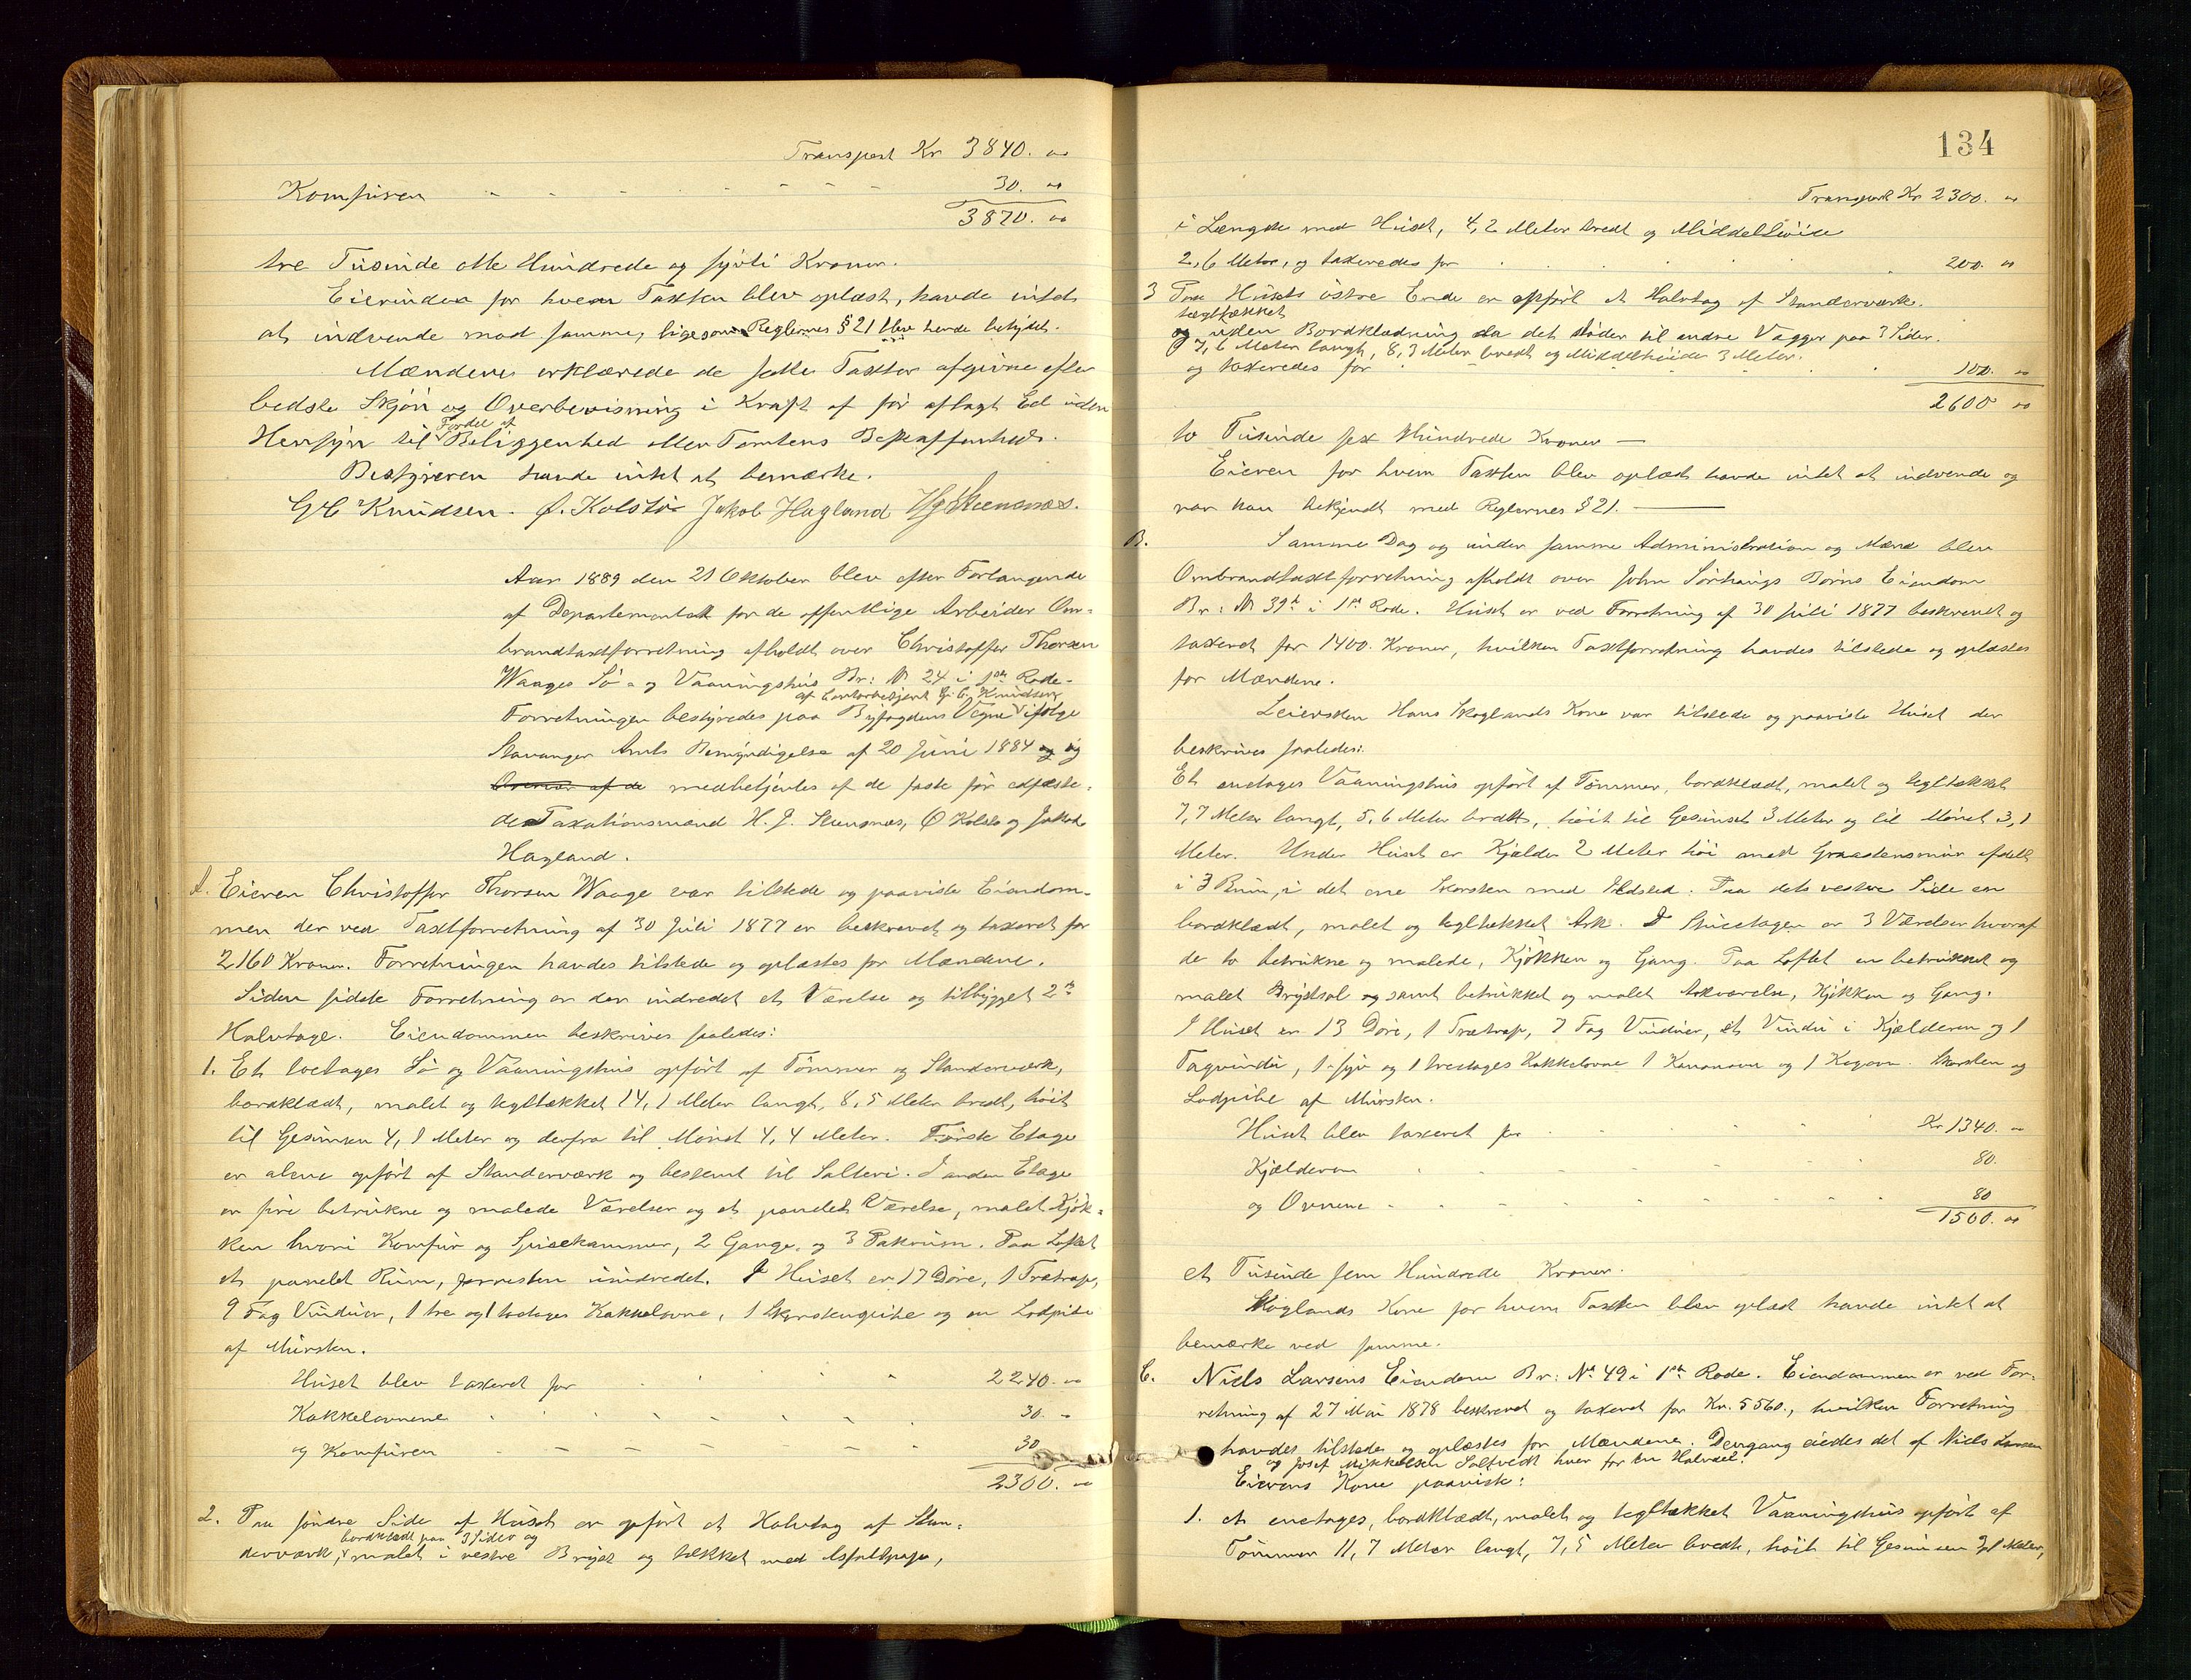 Transport Kr 3840. "
Komfuren - - - - - - - - 30. "
3870. "
tre Tusinde otte Hundrede og sytti Kroner.
Eierinden for hvem Taxten blev oplæst, havde intet
at indvende mod samme, ligesom Reglernes § 21 blev hende betydet.
Mændene erklærede de satte Taxter afgivne efter
bedste Skjøn og Overbevisning i Kraft af før aflagt Ed uden
Fordel af
Hensyn til Beliggenhed eller Tomtens Beskaffenhed.
Bestyreren havde intet at bemærke.
G C Knudsen. O. Kolstø Jakob Hagland HJ Steensnæs.
Aar 1889 den 21 Oktober blev efter Forlangende
af Departementet for de offentlige Arbeider Om-
brandtaxtforretning afholdt over Christoffer Thorsen
Waages Sø- og Vaaningshus Br: N 24 i 1ste Rode.
af Contorbetjent G. C. Knudsen
Forretningen bestyredes paa Byfogdens Vegne ifølge
Stavanger Amts Bemyndigelse af 20 Juni 1884 og
medbetjentes af de faste før edfæste-
de Taxationsmænd H. J. Steensnæs, O Kolstø og Jakob
Hagland.
A. Eieren Christoffer Thorsen Waage var tilstede og paaviste Eiendom-
men der ved Taxtforretning af 30 Juli 1877 er beskrevet og taxeret for
2160 Kroner. Forretningen havdes tilstede og oplæstes for Mændene.
Siden sidste Forretning er der indredet et Værelse og tilbygget 2de
Halvtage. Eiendommen beskrives saaledes:
1. Et toetages Sø og Vaaningshus opført af Tømmer og Standerværk,
bordklædt, malet og tegltækket 14,1 Meter langt, 8,5 Meter bredt, høit
til Gesimsen 4,1 Meter og derfra til Mønet 4,4 Meter. Første Etage
er alene opført af Standerværk og bestemt til Salteri. I anden Etage
er fire betrukne og malede Værelser og et panelet Værelse, malet Kjøk-
ken hvori Komfur og Spisekammer, 2 Gange, og 3 Pakrum. Paa Loftet
et panelet Rum, forresten uindredet. I Huset er 17 Døre, 1 Trætrap,
9 Fag Vinduer, 1 tre og 1 toetages Kakkelovne, 1 Skorstenspibe og en Lodpibe
af Mursten.
Huset blev taxeret for 2240. "
Kakkelovnene 30. "
og Komfuren 30
2300. "
2. Paa søndre Side af Huset er opført et Halvtag af Stan-
bordklædt paa 3 Sider og
derværk, malet i vestre Bryst og tækket med Asfaltpap,
134
Transport Kr 2300. "
i Længde med Huset, 4,2 Meter bredt og Middelhøide
2,6 Meter, og taxeredes for 200. "
3 Paa Husets østre Ende er opført et Halvtag af Standerværk.
tegltækket
og uden Bordklædning da det støder til andre Vægger paa 3 Sider.
7,6 Meter langt, 8,3 Meter bredt og Middelhøide 3 Meter.
og taxeredes for 100. "
2600 "
to Tusinde sex Hundrede Kroner —
Eieren for hvem Taxten blev oplæst havde intet at indvende og
var han bekjendt med Reglernes § 21. —
B. Samme Dag og under samme Administration og Mænd blev
Ombrandtaxtforretning afholdt over John Sørhaugs Børns Eiendom
Br: N 39b i 1ste Rode. Huset er ved Forretning af 30 Juli 1877 beskrevet og
taxeret for 1400 Kroner, hvilken Taxtforretning havdes tilstede og oplæstes
for Mændene.
Leiersken Hans Skoglands Kone var tilstede og paaviste Huset der
beskrives saaledes:
Et enetages Vaaningshus opført af Tømmer, bordklædt, malet og tegltækket
7,7 Meter langt, 5,6 Meter bredt, høit til Gesimset 3 Meter og til Mønet 3,1
Meter. Under Huset er Kjælder 2 Meter høi med Graastensmur afdelt
i 3 Rum, i det ene Skorsten med Ildsted. Paa dets vestre Side en
bordklædt, malet og tegltækket Ark. I Stueetagen er 3 Værelser hvoraf
de to betrukne og malede, Kjøkken og Gang. Paa Loftet en betrukket og
malet Brystsal og samt betrukket og malet Arkværelse, Kjøkken og Gang.
I Huset er 13 Døre, 1 Trætrap, 7 Fag Vinduer, et Vindu i Kjælderen og 1
Tagvindu, 1 fyr og 1 treetages Kakkelovne 1 Kanonovn og 1 Kogovn. Skorsten og
Lodpibe af Mursten.
Huset blev taxeret for Kr 1340. "
Kjælderen 80.
og Ovnene 80
1500. "
et Tusinde fem Hundrede Kroner.
Skoglands Kone for hvem Taxten blev oplæst havde intet at
bemærke ved samme.
C. Niels Larsens Eiendom Br: No 49 i 1ste Rode. Eiendommen er ved For-
retning af 27 Mai 1878 beskrevet og taxeret for Kr. 5560., hvilken Forretning
havdes tilstede og oplæstes for Mændene. Dengang eiedes det af Niels Larsen
og Josef Mikkelsen Saltvedt hver for en Halvdel.
Eierens Kone paaviste:
1. et enetages, bordklædt, malet og tegltækket Vaaningshus opført af
Tømmer 11,7 Meter langt, 7,5 Meter bredt, høit til Gesimsen 3,1 Meter,